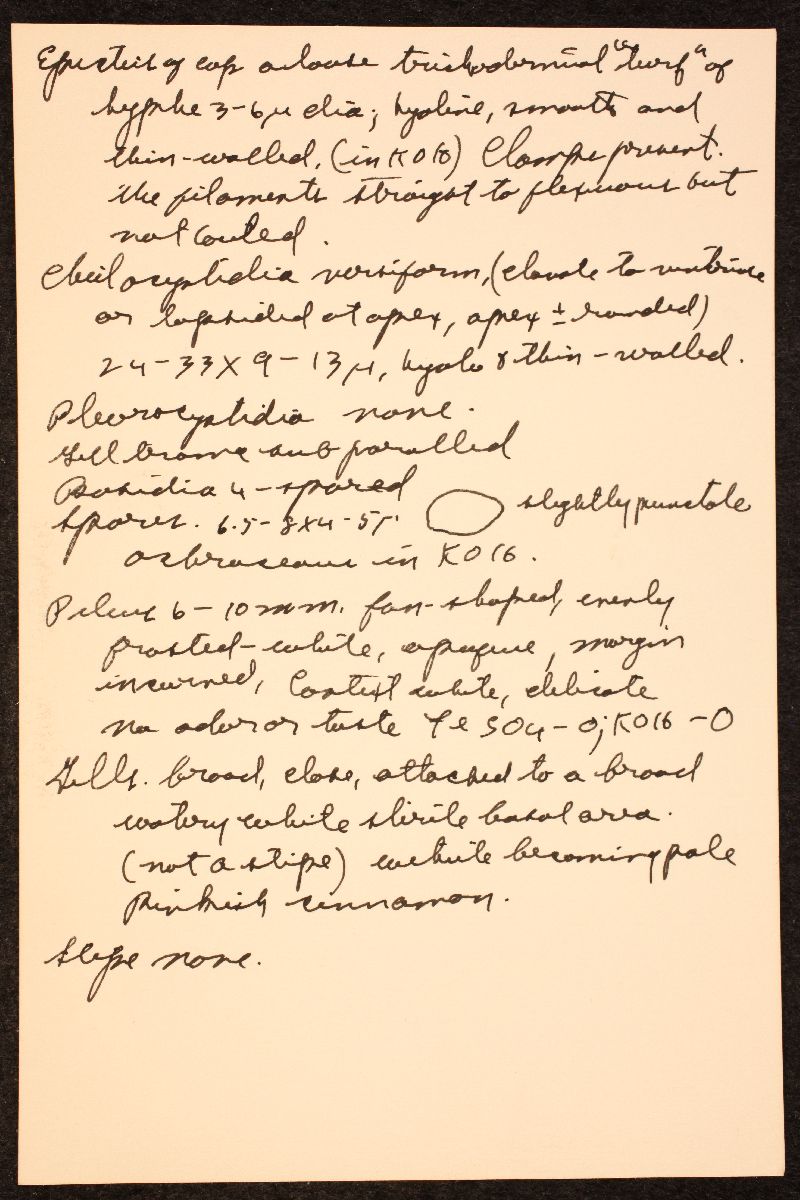 Epicutis of cap a loose trichodermial "turf" of
hyphae 3-6 µ dia; hyaline, smooth and
thin-walled, (in KOH) Clamps present.
the filaments straight to flexuous but
not coiled.
Cheilocystidia versiform, (clavate to ventricose
or lopsided at apex, apex ± rounded)
24-33 X 9-13 µ, hyalo & thin-walled.
Pleurocystidia none.
Gill trama subparallel
Basidia 4-spored
Spores. 6.5-8 X 4-5 µ. slightly punctate
ochraceous in KOH.
Pileus 6-10 mm. fan-shaped, evenly
frosted-white, opaque, margin
incurved, Context white, delicate
no odor or taste FeSO4-0; KOH-0
Gills. broad, close, attached to a broad
watery white sterile basal area.
(not a stipe) white becoming pale
Pinkish cinnamon.
Stipe none.